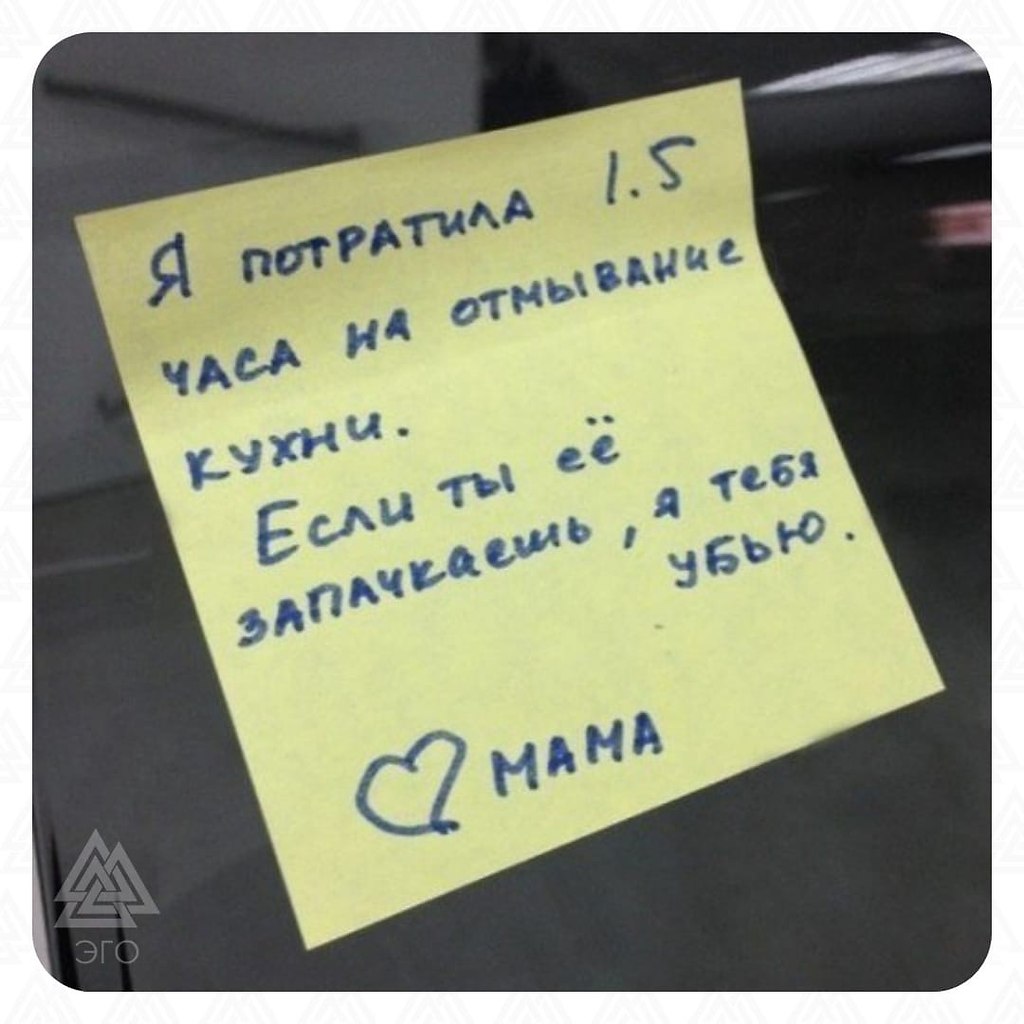 Я ПОТРАТИЛА 1.5
ЧАСА НА ОТМЫВАНИЕ
КУХНИ.
Если ты её
ЗАПАЧКАЕШЬ, я тебя
убью.
МАМА
ЭГО